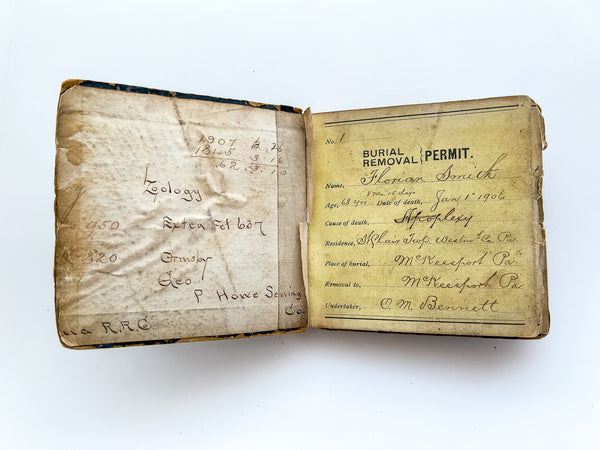 1907 6 26
1845 3 16
62 3 10
Zoology
950 Extra Fct 637
320 Ormsby
Geo.
P Howe Sewing
Co.
R.R.C
No. 1
BURIAL
REMOVAL } PERMIT.
Name, Florian Smith
8 Mo. 15 days
Age, 68 yrs Date of death, Jan 1st 1906
Cause of death, Apoplexy
Residence, St Clair Twp. Westm'd Co. Pa.
Place of burial, McKeesport Pa
Removal to, McKeesport Pa
Undertaker, O. M. Bennett